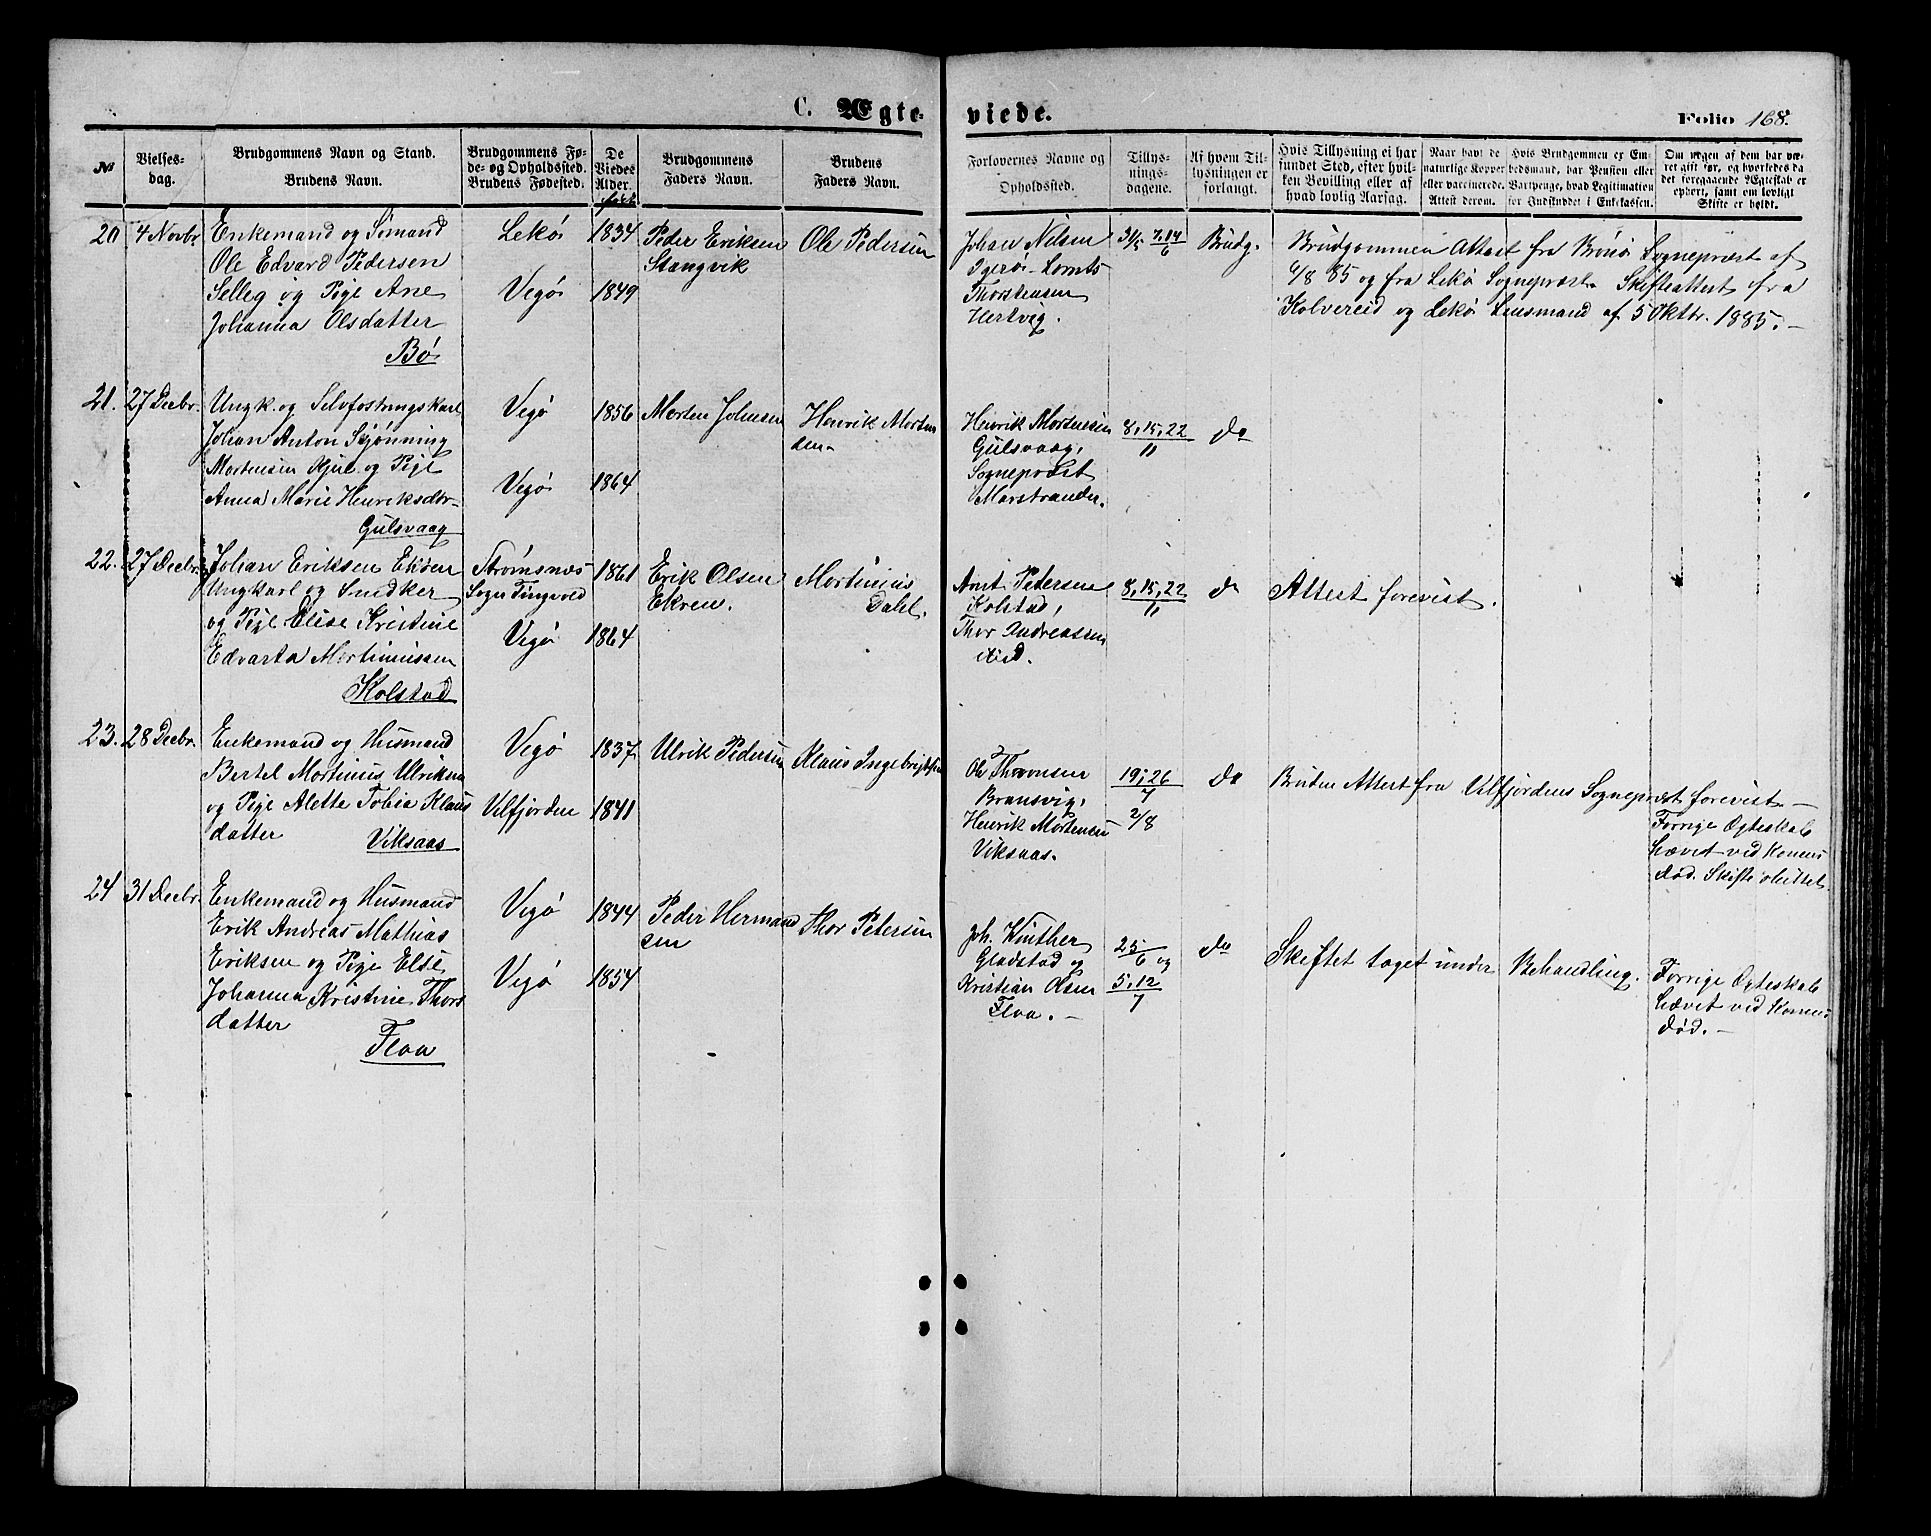 C. Ægte-
viede.
Folio 168.
№
Vielses-
dag.
Brudgommens Navn og Stand.
Brudens Navn.
Brudgommens Fø-
de- og Opholdssted.
Brudens Fødested.
De
Viedes
Alder.
født
Brudgommens
Faders Navn.
Brudens
Faders Navn.
Forlovernes Navne og
Opholdssted.
Tillys-
nings-
dagene.
Af hvem Til-
lysningen er
forlangt.
Hvis Tillysning ei har
fundet Sted, efter hvil-
ken Bevilling eller af
hvad lovlig Aarsag.
Naar havt de
naturlige Kopper
eller vaccinerede.
Attest derom.
Hvis Brudgommen er Em-
bedsmand, har Pension eller
Vartpenge, hvad Legitimation
for Indskuddet i Enkekassen.
Om nogen af dem har væ-
ret gift før, og hvorledes da
det foregaaende Ægteskab er
ophørt, samt om lovligt
Skifte er holdt.
20
4 Novbr
Enkemand og Sømand
Ole Edvard Pedersen
Selleg og Pige Ane
Johanna Olsdatter
Bø
Lekø
Vegø
1834
1849
Peder Eriksen
Stangvik
Ole Pedersen
Johan Nilsen
Igerø - Lomts
Thorstensen
Hertvig.
31/5 7,14/6
Brudg.
Brudgommen Attest fra Brønø Sogneprest af
6/8 85 og fra Lekø Sogneprest. Skifteattest fra
Kolvereid og Lekø Lensmand af 5 Oktbr. 1885. -
21.
27 Decbr.
Ungk. og Selvfostringskarl
Johan Anton Skjønning
Mortensen Kjul og Pige
Anna Marie Henriksdtr-
Gulsvaag
Vegø
Vegø
1856
1864
Morten Johnsen
Henrik Morten
sen
Henrik Mortensen
Gulsvaag,
Sogneprest
Marstrander.
8,15,22/11
do
22.
27 Decbr.
Johan Eriksen Ekren
Ungkarl og Snedker
og Pige Elise Kristine
Edvarta Mortinussen
Kolstad
Strømsnæs
Sogn Tingvold
Vegø
1861
1864
Erik Olsen
Ekren.
Mortinius
Dahl.
Arnt Petersen
Kolstad,
Thor Andreassen
ibid.
8,15,22/11
do
Attest forevist.
23.
28 Decbr.
Enkemand og Husmand
Bertel Mortinus Ulriksen
og Pige Alette Tobia Klaus
datter Viksaas
Vegø
Velfjorden
1837
1841
Ulrik Pedersen
Klaus Ingebrigtsen
Ole Thomsen
Bransvig,
Henrik Mortensen
Viksaas.
19,26/7
2/8
do
Bruden Attest fra Velfjordens Sogneprest forevist. -
Forrige Ægteskab
hævet ved Konens
død. Skifte sluttet
24
31 Decbr.
Enkemand og Husmand
Erik Andreas Mathias
Eriksen og Pige Else
Johanna Kristine Thors
datter
Floa
Vegø
Vegø
1844
1854
Peder Hermand
sen
Thor Petersen
Joh. Winther
Gladstad og
Kristian Olsen
Floa. -
25/6 og
5,12/7
do
Skiftet taget under Behandling.
Forrige Ægteskab
hævet ved Konens
død. -